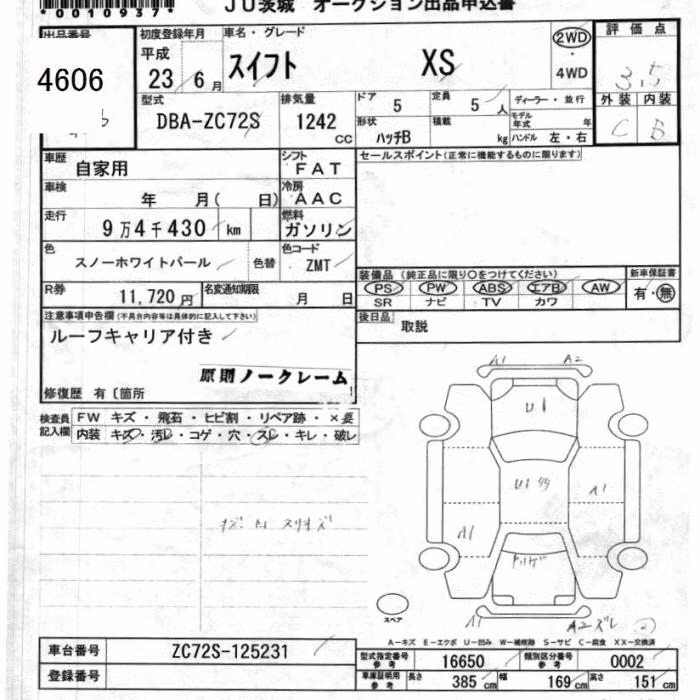 *0010937*
JU茨城 オークション出品申込書
出品番号
4606
初度登録年月
平成
23 6 月
車名・グレード
スイフト XS
2WD
・
4WD
評価点
3.5
型式
DBA-ZC72S
排気量
1242
CC
ドア 5
定員 5 人
ディーラー・並行
形状 ハッチB
積載 kg
モデル年式 年
ハンドル 左・右
外装 内装
C B
車歴
自家用
シフト
FAT
セールスポイント(正常に機能するものに限ります)
車検
年 月( 日)
冷房
AAC
走行
9万4千430 km
燃料
ガソリン
色
スノーホワイトパール 色替
色コード
ZMT
R券
11,720 円
名変通知期限
月 日
装備品 (純正品に限り〇をつけてください)
PS PW ABS エアB AW
SR ナビ TV カワ
新車保証書
有・無
後日品 取説
注意事項申告欄 (不具合内容等は具体的に記入して下さい)
ルーフキャリア付き
原則ノークレーム
修復歴 有〔箇所
検査員記入欄
FW キズ・飛石・ヒビ割・リペア跡・×要
内装 キズ・汚レ・コゲ・穴・スレ・キレ・破レ
A1 A2
U1
A1
A1
A1
A2
スペア
A-キズ E-エクボ U-凹み W-補修跡 S-サビ C-腐食 XX-交換済
車台番号 ZC72S-125231
登録番号
型式指定番号 参考 16650
類別区分番号 参考 0002
車庫証明用 参考 長さ 385 cm 幅 169 cm 高さ 151 cm